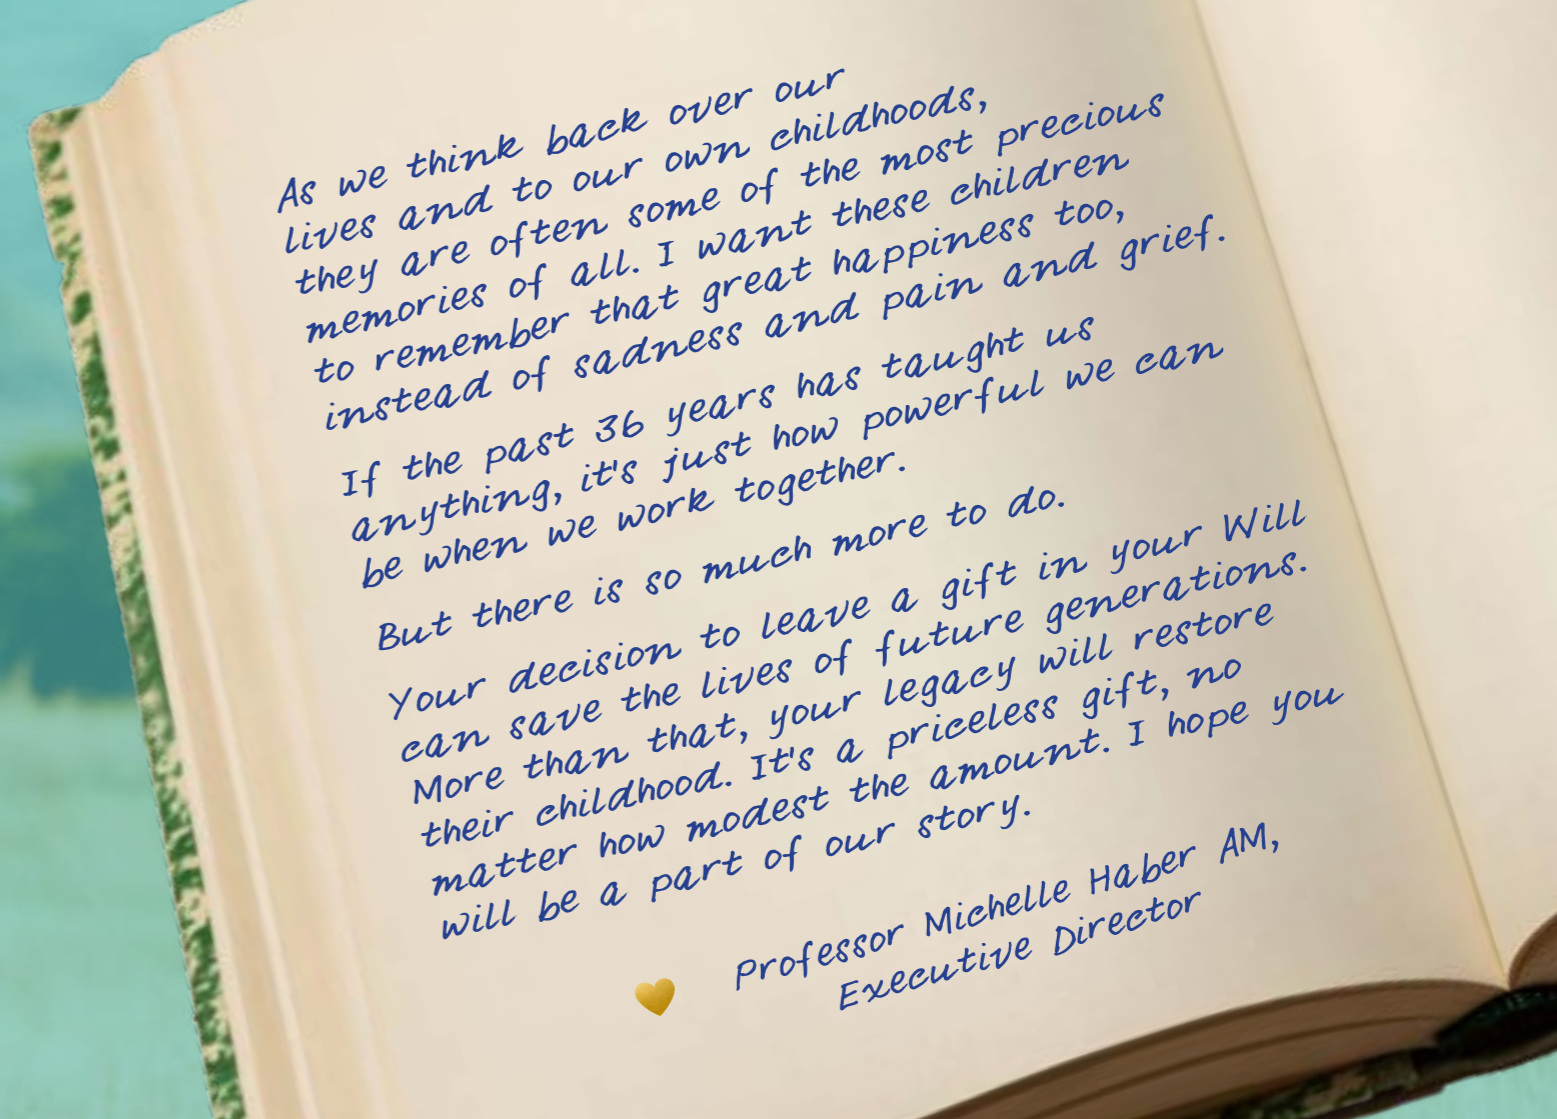 As we think back over our
lives and to our own childhoods,
they are often some of the most precious
memories of all. I want these children
to remember that great happiness too,
instead of sadness and pain and grief.
If the past 36 years has taught us
anything, it's just how powerful we can
be when we work together.
But there is so much more to do.
Your decision to leave a gift in your Will
can save the lives of future generations.
More than that, your legacy will restore
their childhood. It's a priceless gift, no
matter how modest the amount. I hope you
will be a part of our story.
Professor Michelle Haber AM,
Executive Director